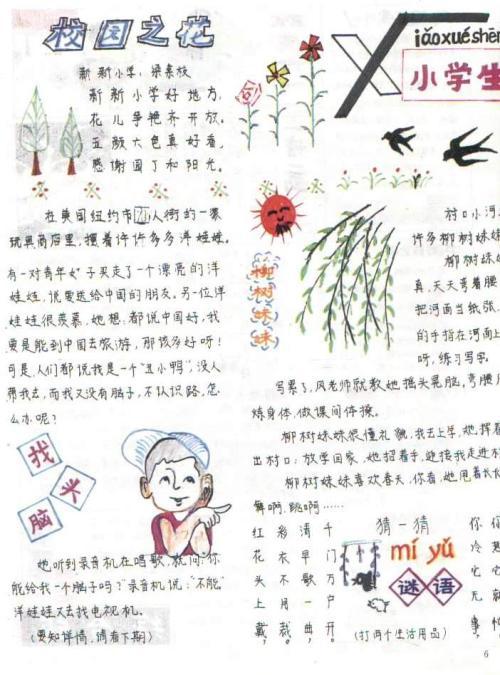 校园之花
新新小学，梁素枝
新新小学好地方，
花儿争艳齐开放。
五颜六色真好看，
感谢园丁和阳光。
在美国纽约市 人街的一家
玩具商店里，摆着许许多多洋娃娃。
有一对青年 子买走了一个漂亮的洋
娃娃，说要送给中国的朋友。另一位洋
娃娃很羡慕，她想：都说中国好，我
要是能到中国去旅游，那该多好呀！
可是，人们都说我是一个"丑小鸭"，没人
帮我去，而我又没有脑子，不认识路，怎
么办呢？
找
头
脑
她听到录音机在唱歌，就问："你
能给我一个脑子吗？"录音机说："不能"
洋娃娃又去找电视机。
（要知详情，请看下期）
iǎoxuéshēn
小学生
柳树妹妹
村口小河
许多柳树妹妹
柳树妹妹
真，天天弯着腰
把河面当纸张，
的手指在河面上
呀，练习写字。
写累了，风老师就教她摇头晃脑，弯腰
炼身体，做课间体操。
柳树妹妹很懂礼貌，我去上学，她挥着
出村口；放学回家，她招着手，迎接我走进村
柳树妹妹喜欢春天，你看，她甩着长长
舞啊，跳啊……
猜一猜
mí yǔ
谜语
千门万户一　开，
清早不歌　曲，
彩衣不　月　裁，
红花头上戴，
（打两个生活用品）
你
冷
它
无
事
6